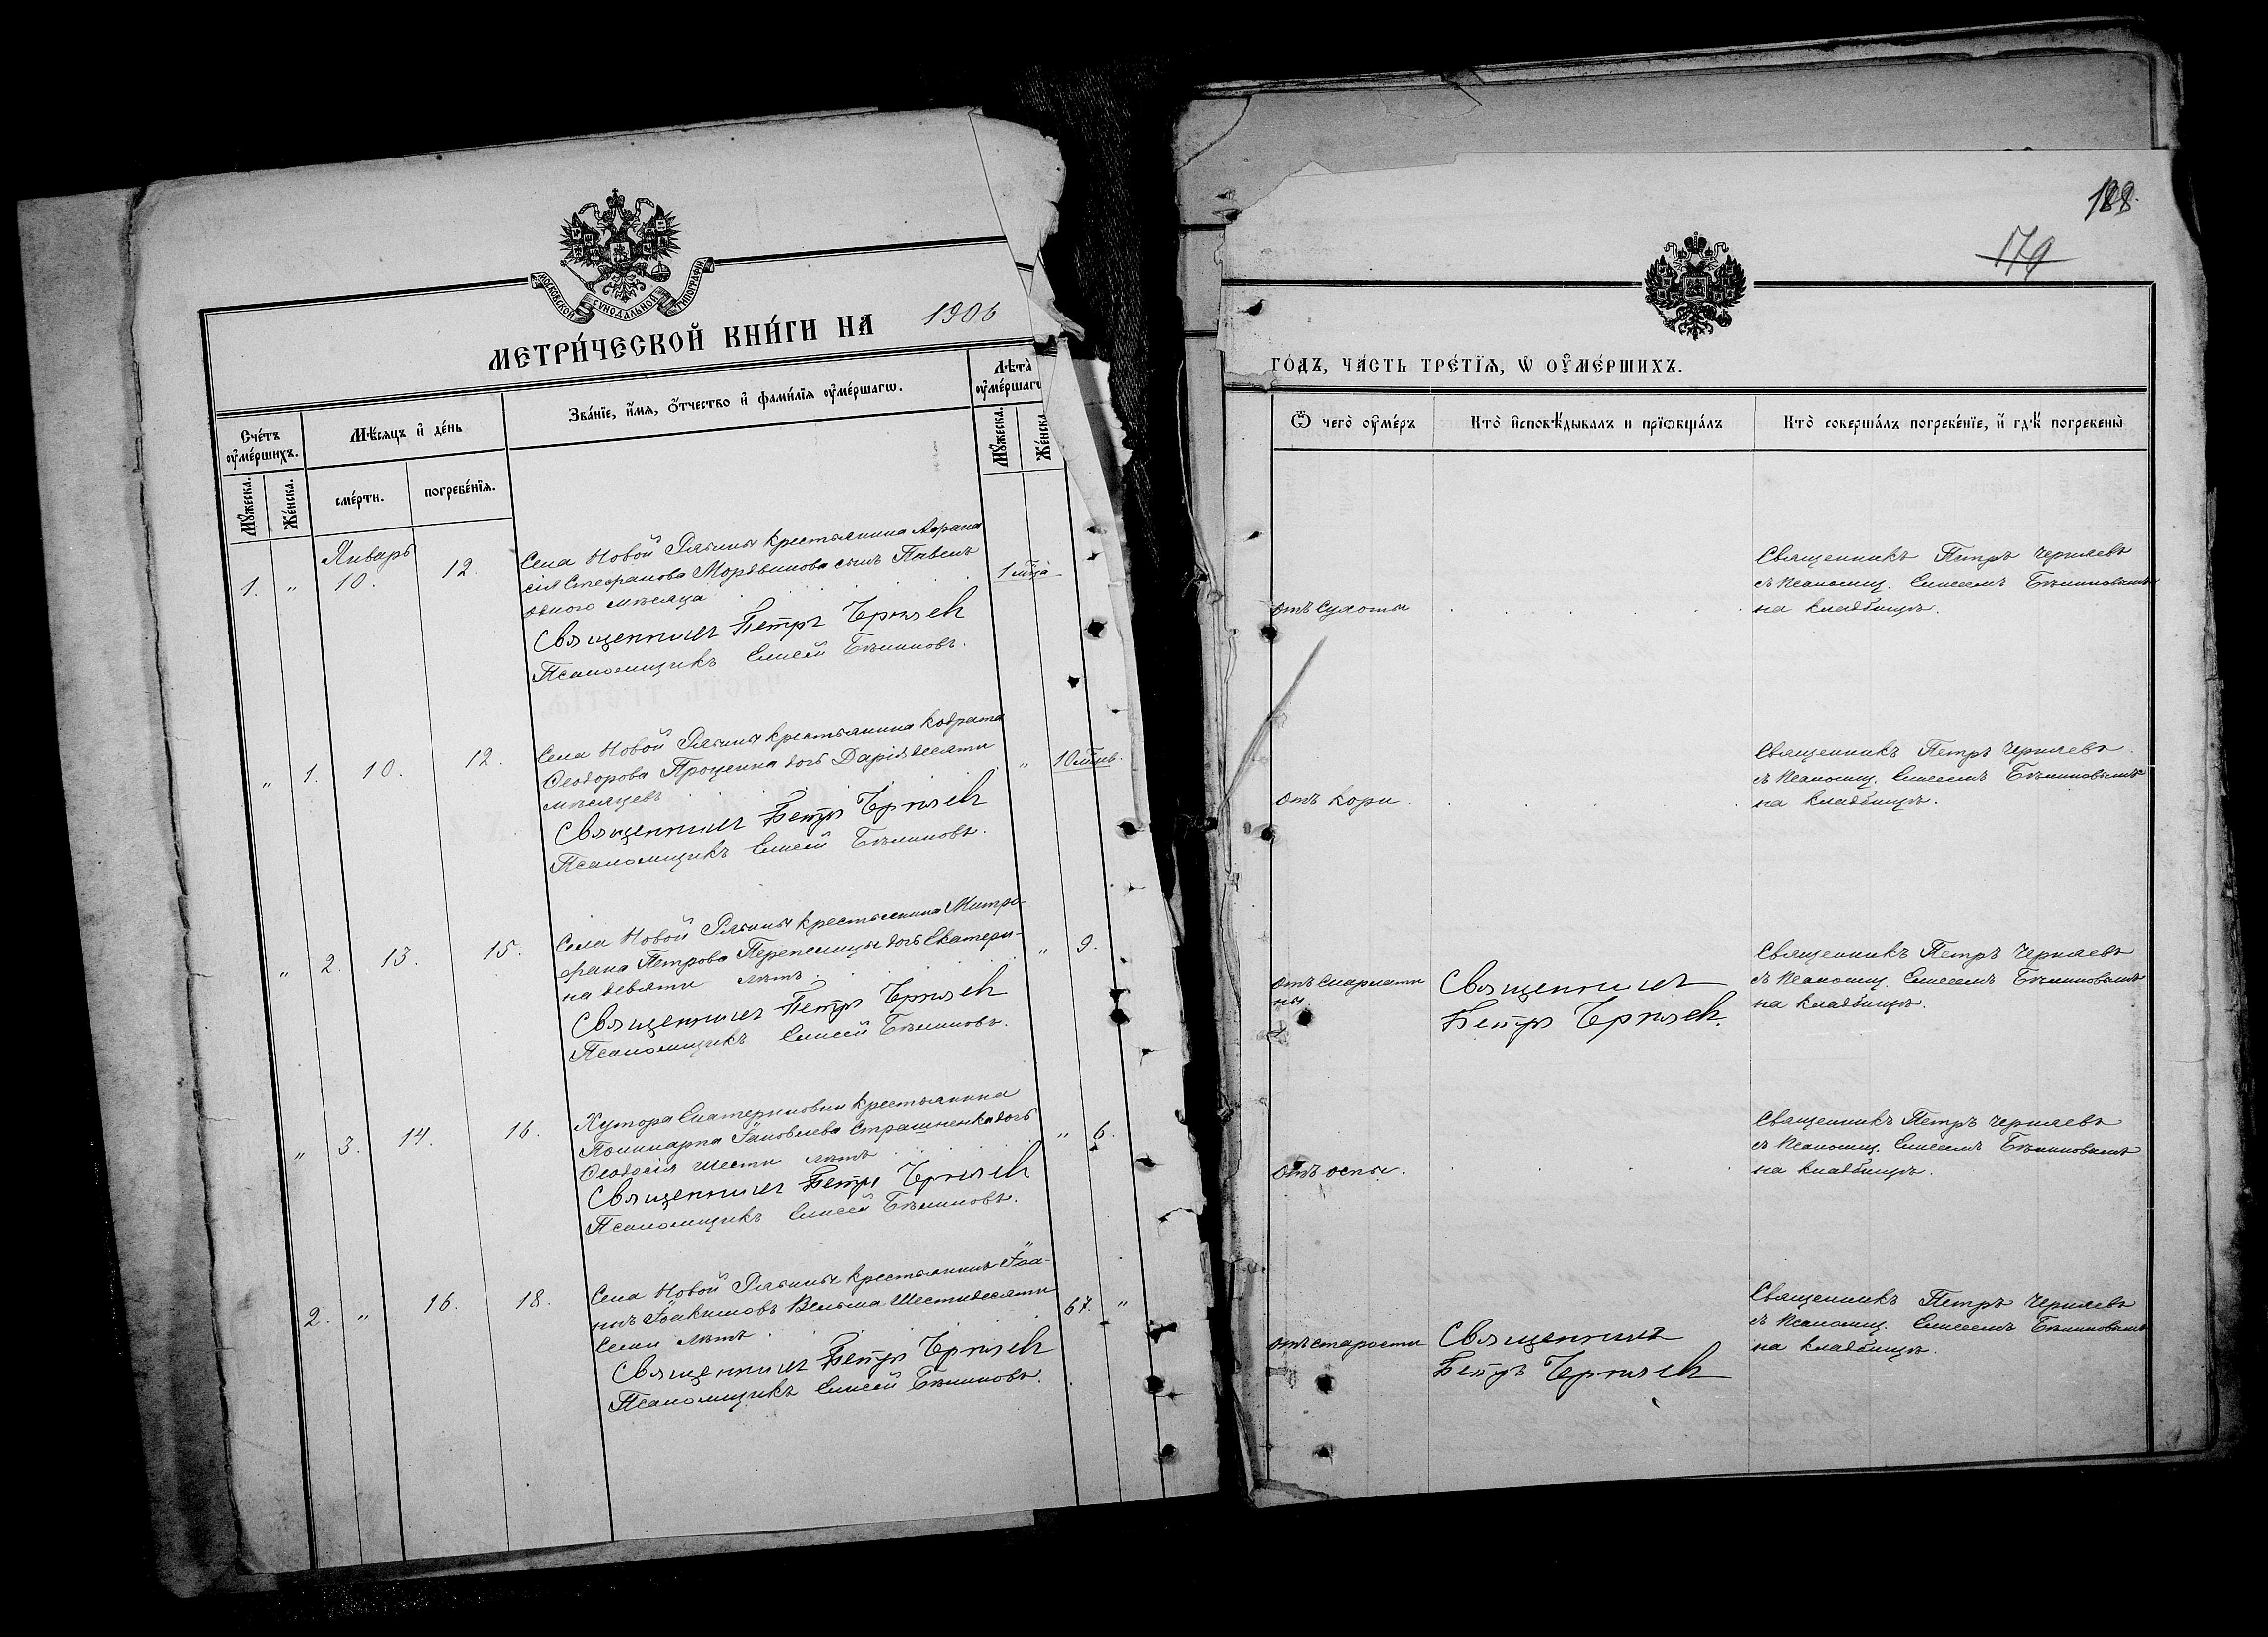 188.
179
МОСКОВСКОЙ СѴНОДАЛЬНОЙ ТИПОГРАФІИ
МЕТРИ́ЧЕСКОЙ КНИ́ГИ НА 1906
ГО́ДЪ, ЧА́СТЬ ТРЕ́ТІѦ, Ѡ ОУ҆МЕ́РШИХЪ.
Сче́тъ оу҆ме́ршихъ.
Мѣ́сяцъ и҆ де́нь
Зва́нїе, и҆́мя, ѻ҆́тчество и҆ фами́лїя оу҆ме́ршагѡ.
Лѣта̀ оу҆ме́ршагѡ
Мꙋ́жеска.
Же́нска.
сме́рти.
погребе́нїя.
Мꙋ́жеска.
Же́нска
Ѿ чегѡ̀ оу҆ме́ръ
Кто̀ и҆сповѣ́дывалъ и прїѡбща́лъ
Кто̀ соверша́лъ погребе́нїе, и҆ гдѣ̀ погребены̀
Январь
1. " 10. 12.
Села Новой Рябины крестьянина Афана
сія Стефанова Мордвинова сынъ Павелъ
одного мѣсяца
1 мца
Священникъ Петръ Черняев
Псаломщикъ Елисей Бѣлиновъ.
отъ сухоты
Священникъ Петръ Черняевъ
съ псаломщ. Елисеемъ Бѣлиновымъ
на кладбищѣ.
" 1. 10. 12.
Села Новой Рябины крестьянина Кодрата
Ѳеодорова Проценка дочь Дарія десяти
мѣсяцевъ
" 10 мцевъ.
Священникъ Петръ Черняев
Псаломщикъ Елисей Бѣлиновъ.
отъ кори.
Священникъ Петръ Черняевъ
съ псаломщ. Елисеемъ Бѣлиновымъ
на кладбищѣ.
" 2. 13. 15.
Села Новой Рябины крестьянина Митро-
фана Петрова Перепелицы дочь Екатери-
на девяти лѣтъ
" 9.
Священникъ Петръ Черняев
Псаломщикъ Елисей Бѣлиновъ.
отъ скарлати
ны.
Священникъ
Петръ Черняев.
Священникъ Петръ Черняевъ
съ псаломщ. Елисеемъ Бѣлиновымъ
на кладбищѣ.
" 3. 14. 16.
Хутора Екатериновки крестьянина
Поликарпа Іаковлева Страшненка дочь
Ѳеодосія шести лѣтъ
" 6.
Священникъ Петръ Черняев
Псаломщикъ Елисей Бѣлиновъ.
отъ оспы.
Священникъ Петръ Черняевъ
съ псаломщ. Елисеемъ Бѣлиновымъ
на кладбищѣ.
2. " 16. 18.
Села Новой Рябины крестьянинъ Іоа-
ннъ Іоакимовъ Вельма шестидесяти
семи лѣтъ
67. "
Священникъ Петръ Черняев
Псаломщикъ Елисей Бѣлиновъ.
отъ старости
Священникъ
Петръ Черняев
Священникъ Петръ Черняевъ
съ псаломщ. Елисеемъ Бѣлиновымъ
на кладбищѣ.